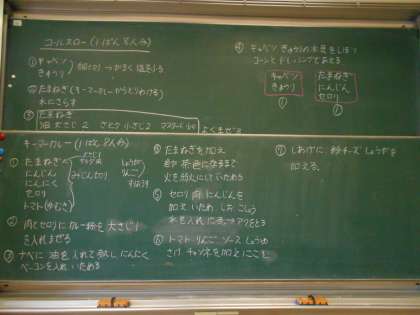 コールスロー(1ぱん8人分)
①キャベツ
きゅうり 細切り→かるく塩をふる
②たまねぎ(キーマーカレーからとりわける)
水にさらす
③たまねぎ
油 大さじ2 さとう 小さじ2 マスタード
よくまぜる
④キャベツ きゅうりの水気をしぼり
コーンとドレッシングであえる
キャベツ
きゅうり
①
たまねぎ
にんじん
セロリ
①
キーマカレー(1ぱん8人分)
①たまねぎ
にんじん
にんにく
セロリ
みじん切り
しょうが
りんご
すりおろす
トマト(ゆむき)
②肉とセロリにカレー粉を大さじ1
を入れまぜる
③ナベに油を入れて熱し にんにく
ベーコンを入れいためる
④たまねぎを加え
茶色になるまで
火を弱火にしていためる
⑤セロリ 肉 にんじんを
加えいため しお こしょう
水を入れに アクをとる
⑥トマト・りんご ソース しょうゆ
さけ チャツネを加えにこむ
⑦しあげに 粉チーズ しょうがを
加える。